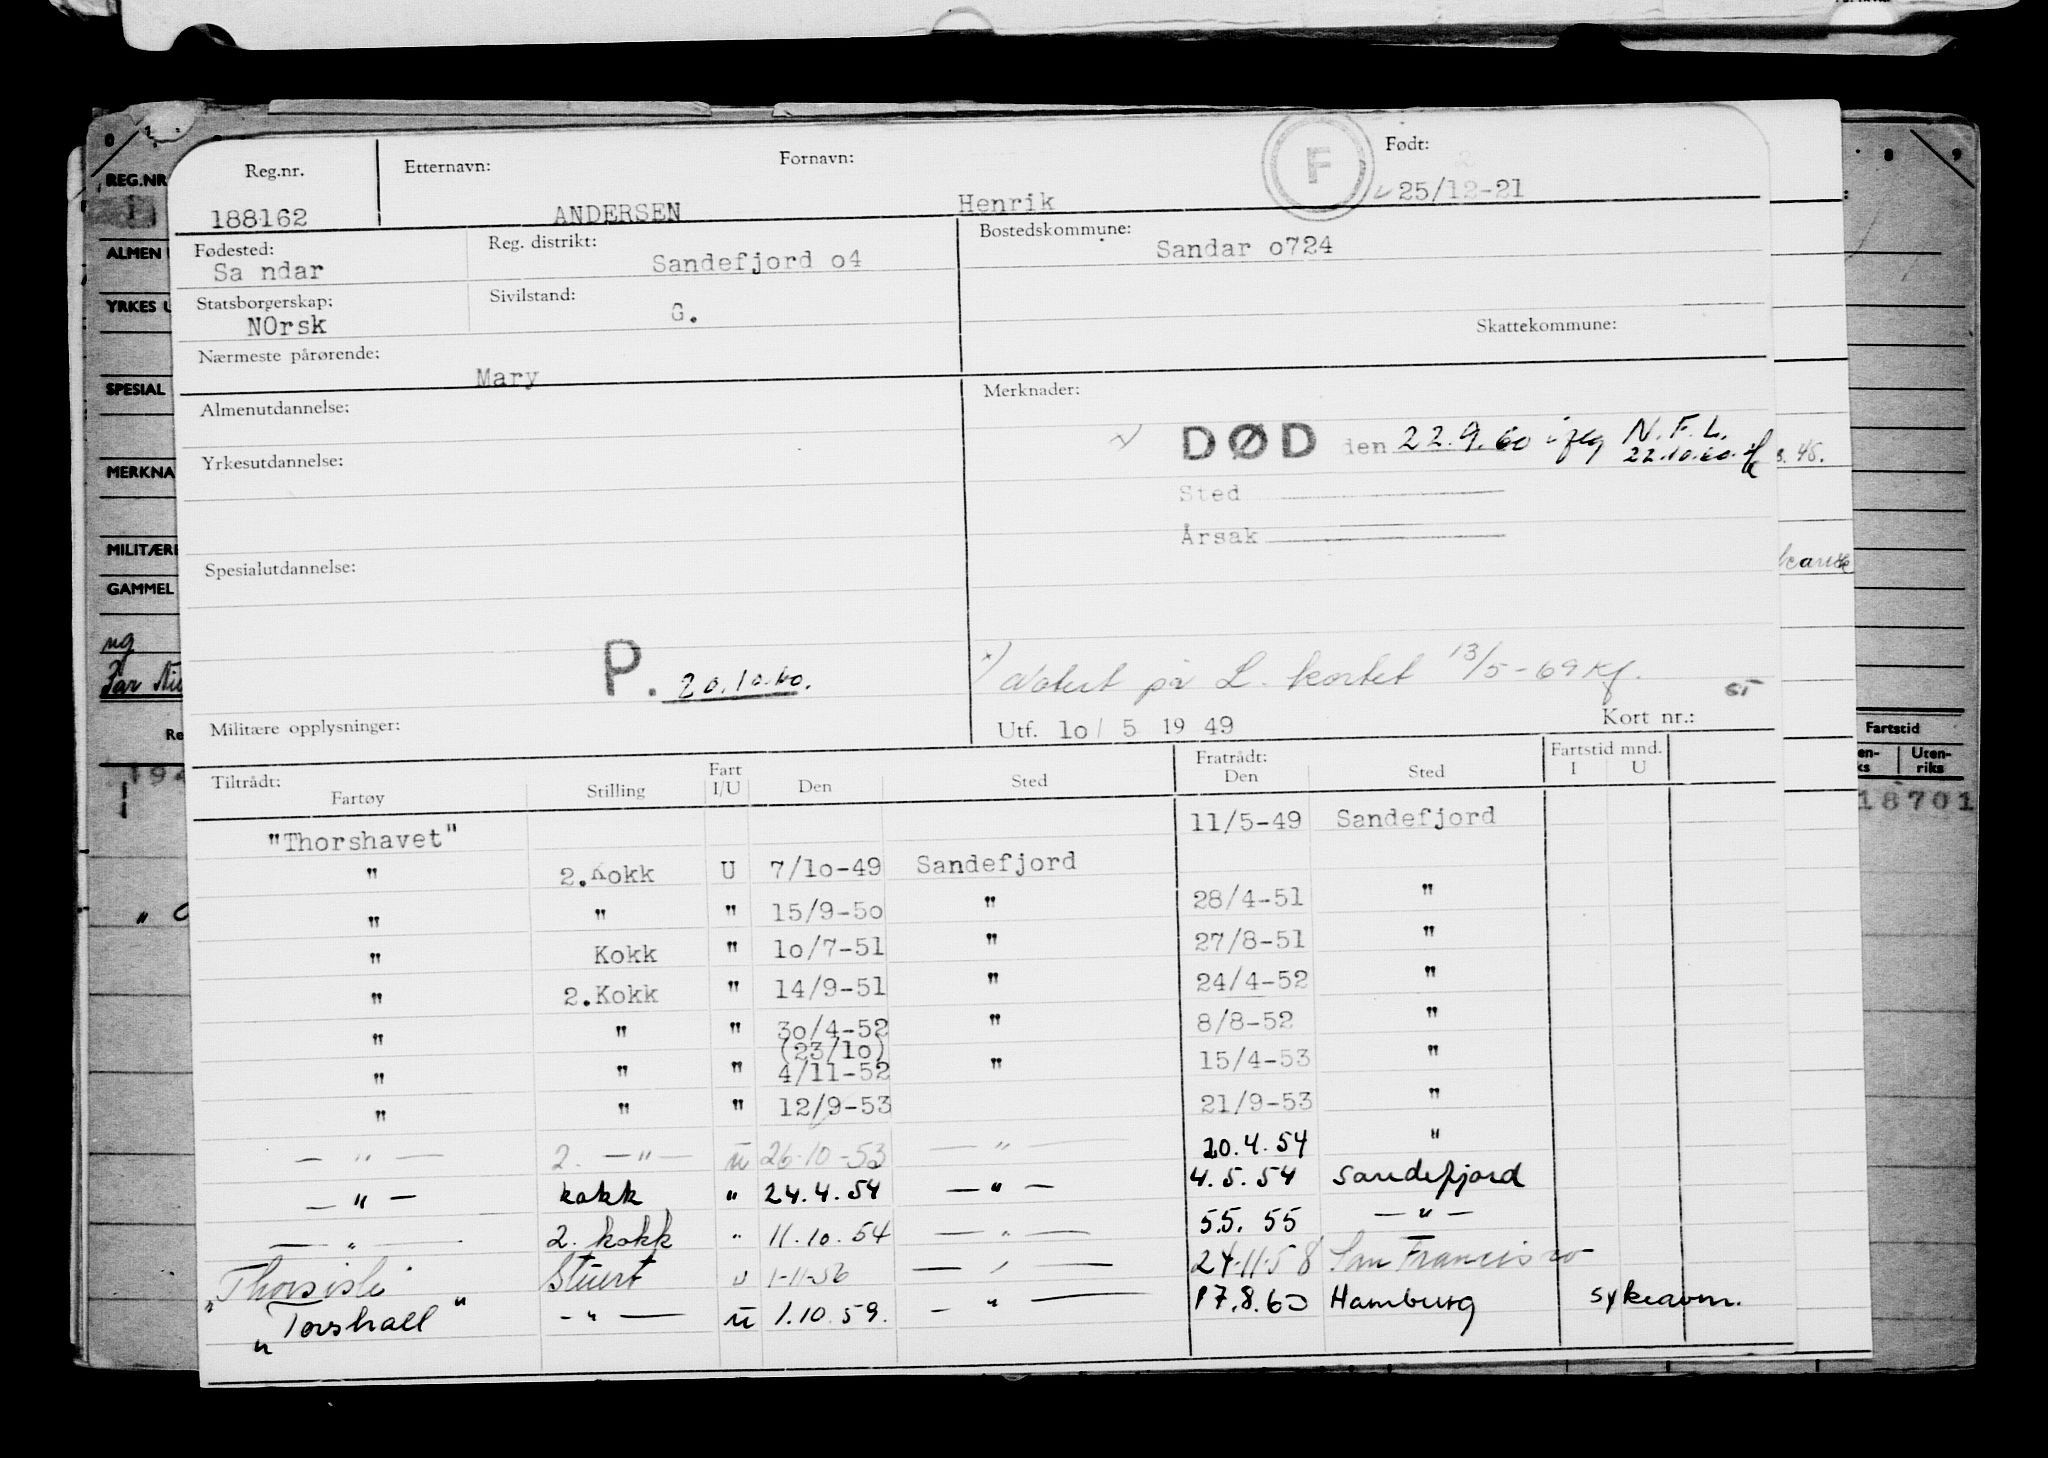 Reg.nr. Etternavn: Fornavn: F Født:
188162 ANDERSEN Henrik 25/12-21
Fødested: Reg. distrikt: Bostedskommune:
Sa ndar Sandefjord o4 Sandar o724
Statsborgerskap: Sivilstand:
NOrsk G.
Skattekommune:
Nærmeste pårørende:
Mary
Almenutdannelse: Merknader:
x) DØD den 22.9.60 N.F.L.
22.10.60.
Yrkesutdannelse:
Sted
Årsak
Spesialutdannelse:
P. 20.10.60.
x) Notert på L. kortet 13/5-69 Kf.
Militære opplysninger: Utf. 1o/ 5 19 49 Kort nr.:
Tiltrådt: Fratrådt: Fartstid mnd.
Fartøy Stilling Fart I/U Den Sted Den Sted I U
"Thorshavet" 11/5-49 Sandefjord
" 2.Kokk U 7/1o-49 Sandefjord
" " " 15/9-5o " 28/4-51 "
" Kokk " 1o/7-51 " 27/8-51 "
" 2.Kokk " 14/9-51 " 24/4-52 "
" " " 3o/4-52 " 8/8-52 "
(23/1o)
" " " 4/11-52 " 15/4-53 "
" " " 12/9-53 21/9-53 "
— " — 2. — " — u 26.10-53 — " — 20.4.54 "
— " — kokk " 24.4.54 — " — 4.5.54 Sandefjord
— " — 2. kokk " 11.10.54 — " — 5.5. 55 — " —
"Thorsisle" Stuert u 1-11-56 — " — 24-11-58 San Francisco
"Torshall" — " — u 1.10.59. — " — 17.8.60 Hamburg sykeavm.
REG.NR
ALMEN
YRKES U
SPESIAL
MERKNA
MILITÆRE
GAMMEL
Fartstid
Uten-
riks
18701